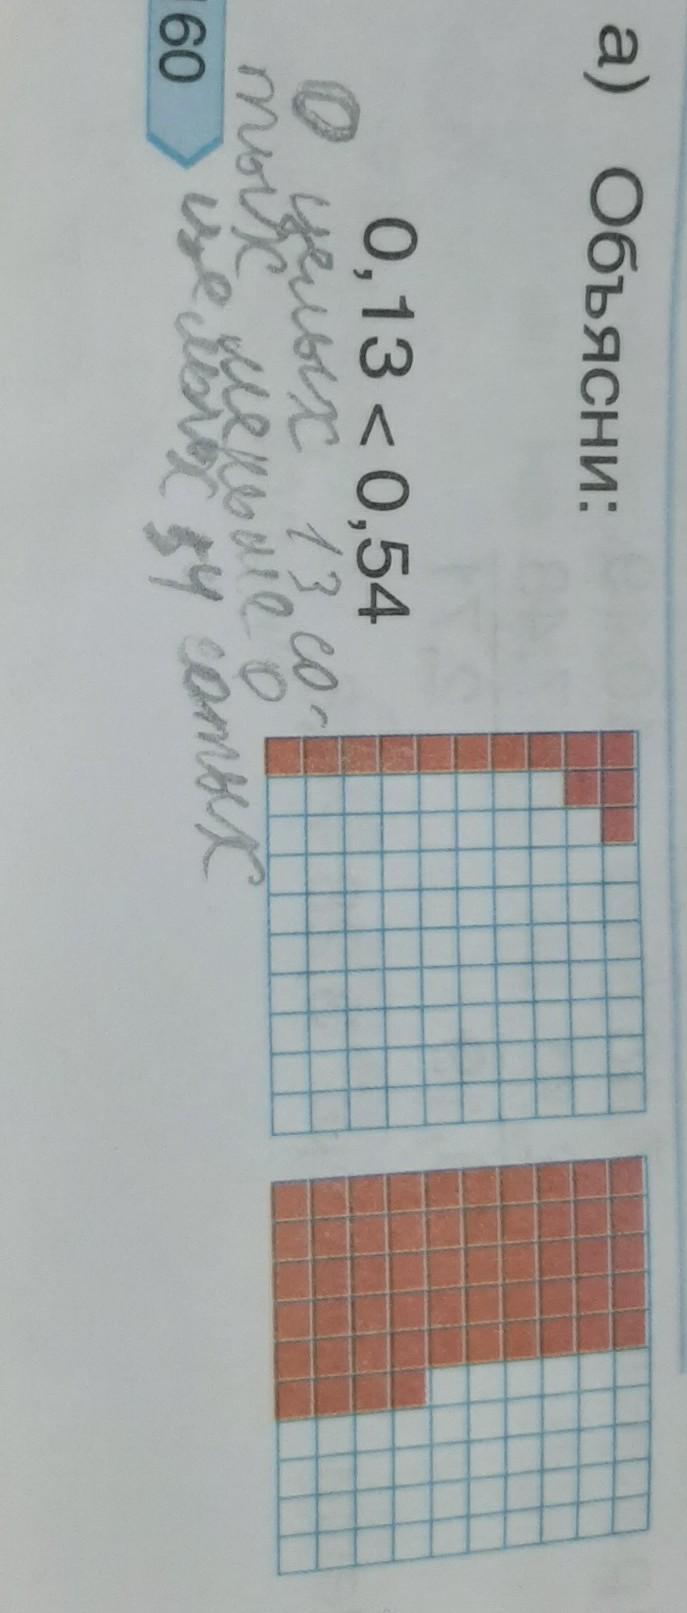 а) Объясни:
0,13 < 0,54
0 целых 13 со-
тых меньше 0
целых 54 сотых
160